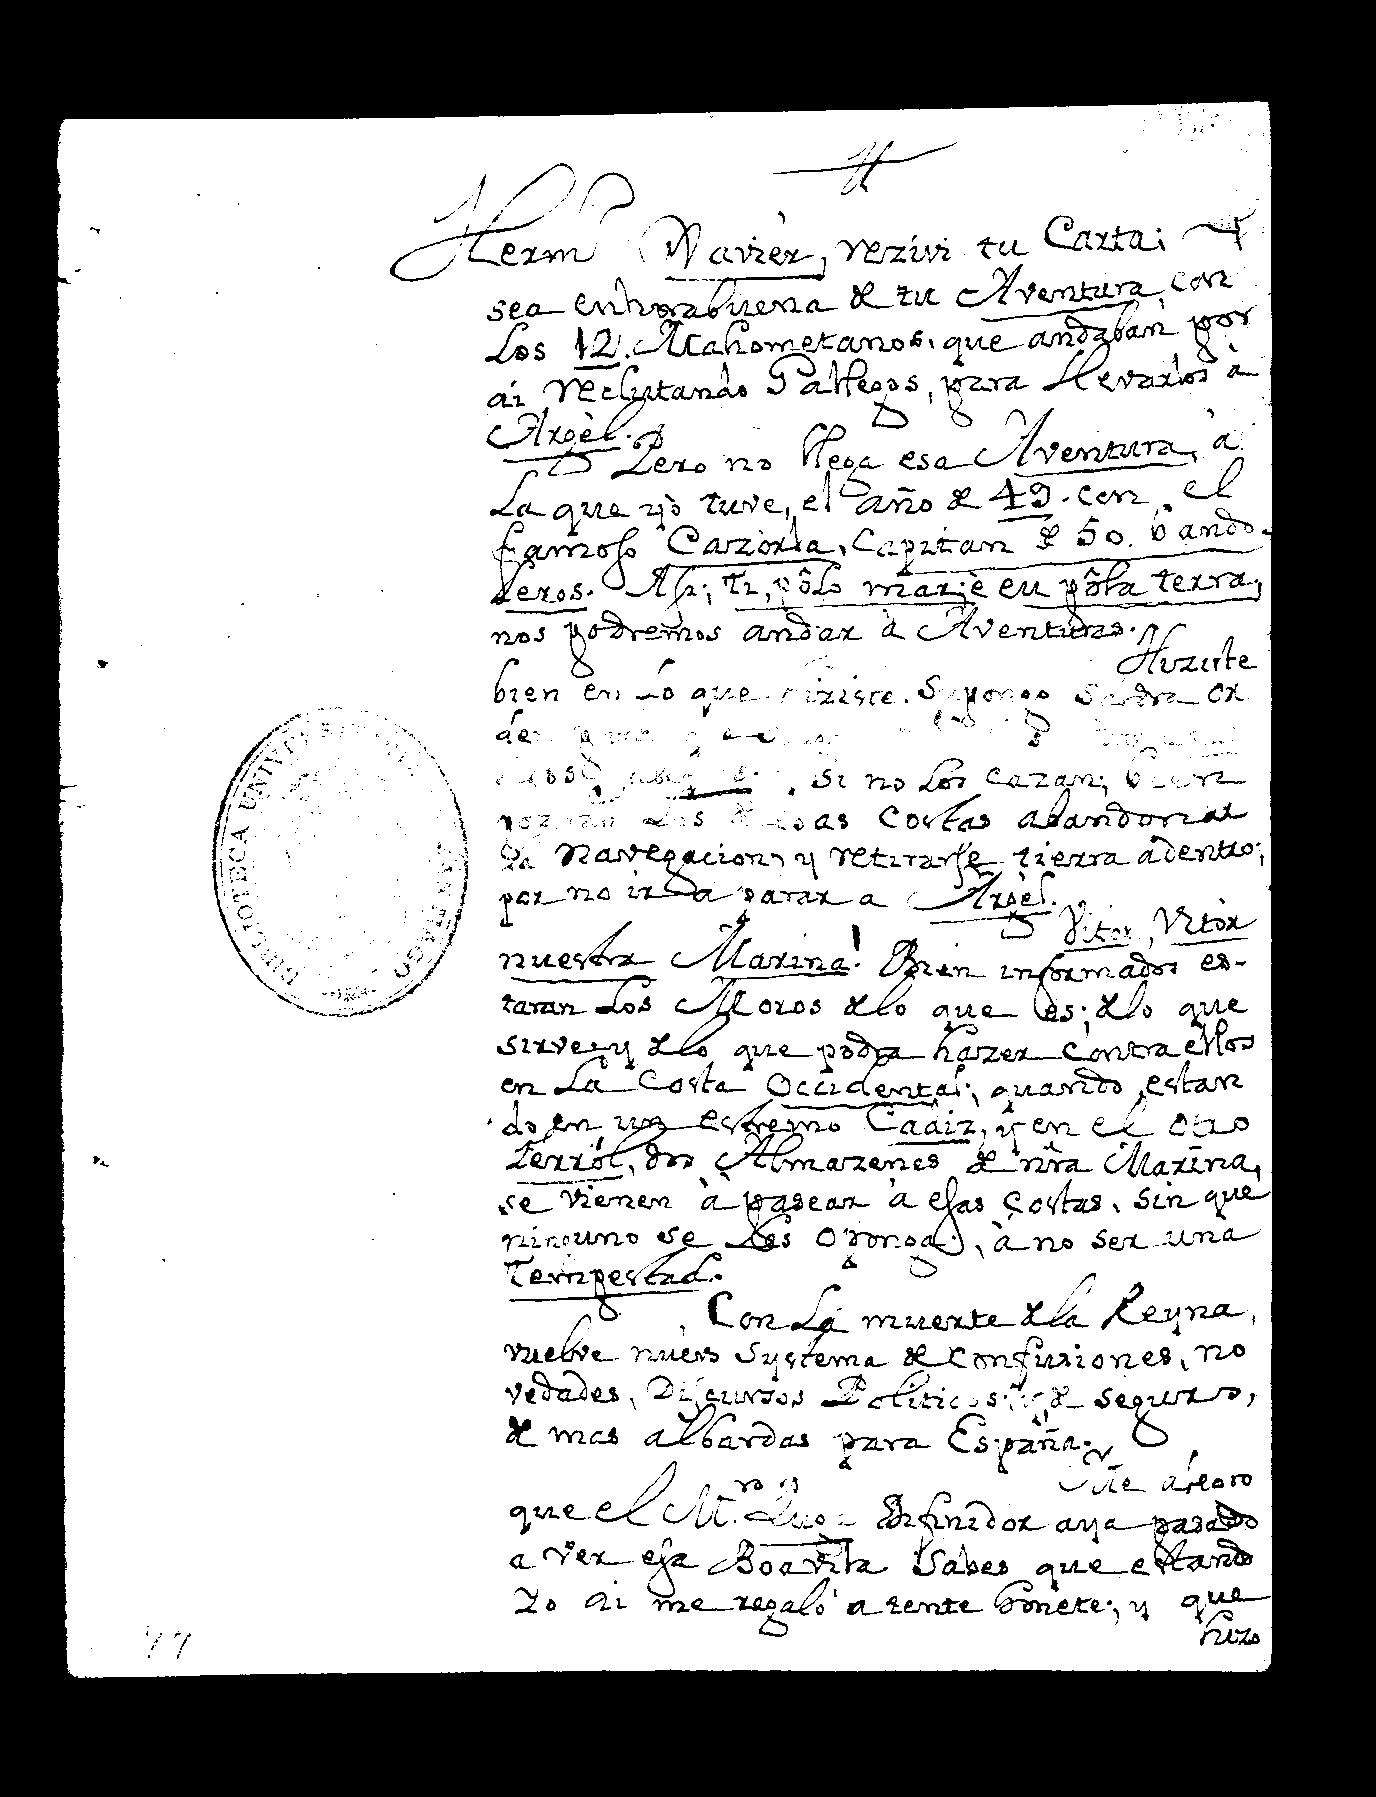 Herm.º Xavier, rezivi tu Carta; Y
sea enhorabuena de tu Aventura, con
los 12. Mahometanos, que andaban por
ai reclutando Gallegos, para llevarlos à
Argèl.
Pero no llega esa Aventura, à
la que yò tuve, el año de 49. con el
famoso Cazorla, Capitan de 50. vando-
leros. Asi; tu, pôlo mar; è eu pôla terra,
nos podremos andar à Aventuras.
Hiziste
bien en lo que hiziste. Supongo saldra or
den
Si no los cazan; bien
podran los de esas Costas abandonar
la Navegacion, y retirarse tierra adentro;
por no ir a parar a Argèl.
Vitor, Vitòr
nuestra Marina! Bien informados es-
taran los Moros de lo que es; de lo que
sirve; y de lo que podra hazer contra ellos
en la Costa Occidental; quando, estan
do en un estremo Cadiz, y en el otro
Ferròl, dos Almazenes de nr̃a Marina,
se vienen à pasear à esas Costas, sin que
ninguno se les oponga, à no ser una
Tempestad.
Con la muerte de la Reyna,
vuelve nuevo systema de confusiones, no
vedades, Discursos Politicos; y, de seguro,
de mas albardas para España.
Me alegro
que el M.ro Difinidor aya pasado
a ver esa Boavita. Sabes que estando
Yo ai me regalò a tente bonete; y que
hizo
BIBLIOTECA UNIVERSITARIA SANTIAGO
77